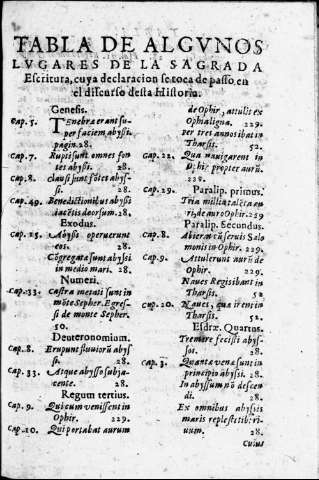 TABLA DE ALGVNOS
LVGARES DE LA SAGRADA
Escritura, cuya declaracion se toca de passo, en
el discurso desta Historia.
Genesis.
Cap. 5. Tenebræ erant su-
per faciem abyssi.
pagin. 28.
Cap. 7. Rupti sunt omnes fon
tes abyssi. 28.
Cap. 8. clausi sunt fōtes abys-
si. 28.
Cap. 49. Benedictionibus abyssi
iacētis deorsum. 28.
Exodus.
Cap. 15. Abyssi operuerunt
eos. 28.
Cōgregatæ sunt abyssi
in medio mari. 28.
Numeri.
Cap. 33. Castra metati sunt in
mōte Sepher. Egres-
si de monte Sepher.
50.
Deuteronomium.
Cap. 8. Erūpunt fluviorū abys
si. 28.
Cap. 33. Atque abysso subja-
cente. 28.
Regum tertius.
Cap. 9. Qui cum venissent in
Ophir. 229.
Cap. 10. Qui portabat aurum
de Ophir, attulit ex
Ophir ligna. 229.
Per tres annos ibat in
Tharsis. 52.
Cap. 22. Qua navigarent in
Ophir propter aurū.
229.
Paralip. primus.
Cap. 29. Tria millia talēta au
ri, de auro Ophir. 229
Paralip. Secundus.
Cap. 8. Abierāt cū servis Salo
monis in Ophir. 229.
Cap. 9. Attulerunt aurū de
Ophir. 229.
Naues Regis ibant in
Tharsis. 52.
Cap. 20. Naues, quæ irent in
Tharsis. 52.
Esdræ. Quartus.
Tremore fecisti abys-
sos. 28.
Cap. 3. Quantæ venæ sunt in
principio abyssi. 28.
In abyssum nō descen
di. 28.
Ex omnibus abyssis
maris replesti tibi ri-
uum. 28.
Cuius